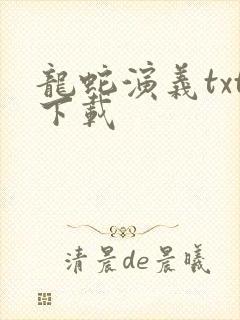 龍蛇演義txt
下載
清晨de晨曦